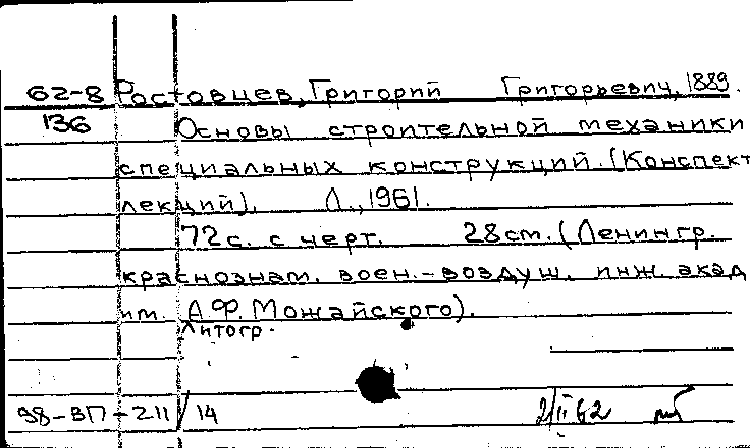 62-8 Ростовцев, Григорий Григорьевич, 1889.
136 Основы строительной механики
специальных конструкций. (Конспект
лекций). Л., 1961.
72с. с черт. 28см. (Ленингр.
краснознам. воен.-воздуш. инж. акад
им. А.Ф. Можайского).
Литогр.
98-ВП-211/14 2/II 62